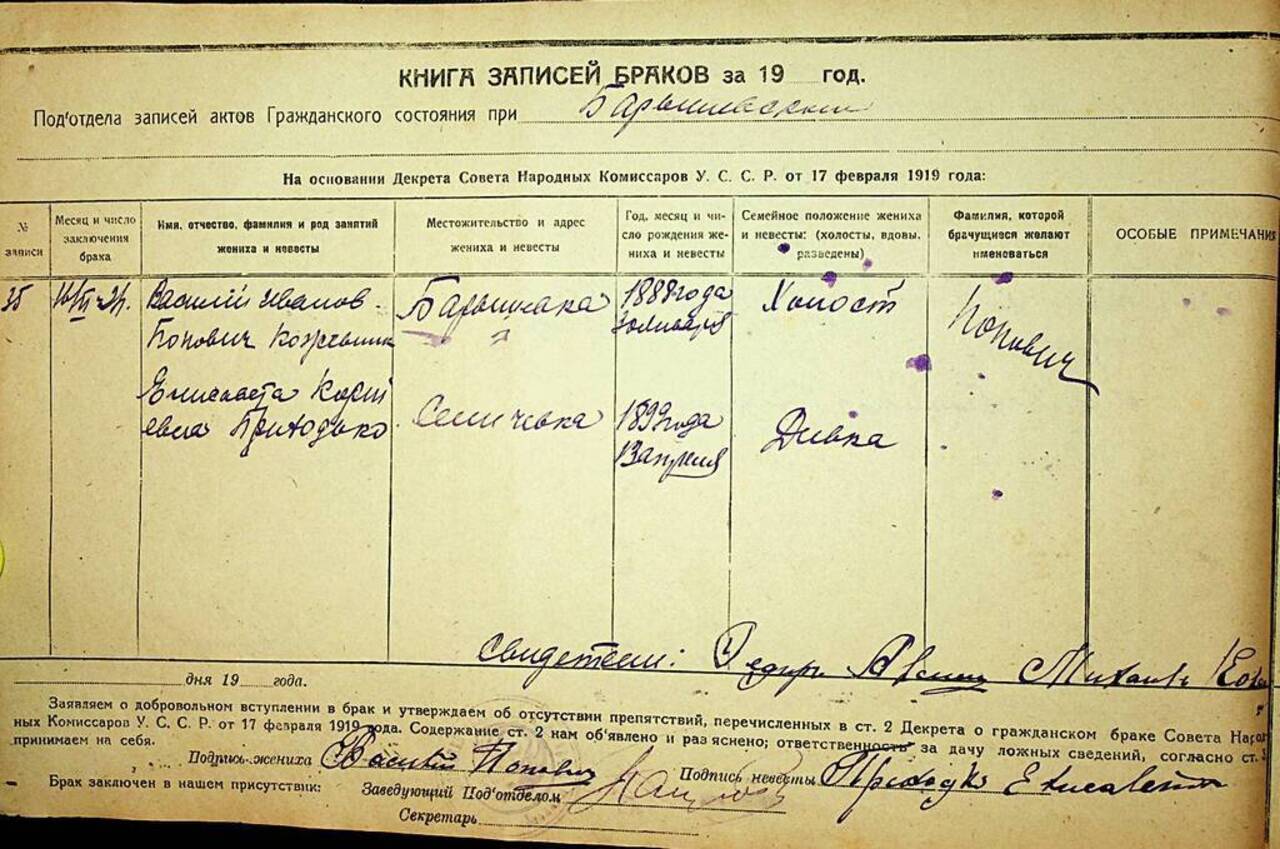 КНИГА ЗАПИСЕЙ БРАКОВ за 19 год.
Под'отдела записей актов Гражданского состояния при Барышевским
На основании Декрета Совета Народных Комиссаров У. С. С. Р. от 17 февраля 1919 года:
№ записи
Месяц и число заключения брака
Имя, отчество, фамилия и род занятий жениха и невесты
Местожительство и адрес жениха и невесты
Год, месяц и число рождения жениха и невесты
Семейное положение жениха и невесты: (холосты, вдовы, разведены)
Фамилия, которой брачущиеся желают именоваться
ОСОБЫЕ ПРИМЕЧАНИЯ
35
Василий Иванов
Попович Кожевник
Барышевка
1888 года
30 января
Холост
Попович
Елисавета Корнй
евна Приходько
Семичовка
1899 года
13 апреля
Дивка
свидетели: Федир Михаил
дня 19 года.
Заявляем о добровольном вступлении в брак и утверждаем об отсутствии препятствий, перечисленных в ст. 2 Декрета о гражданском браке Совета Народ
ных Комиссаров У. С. С. Р. от 17 февраля 1919 года. Содержание ст. 2 нам об'явлено и раз'яснено; ответственность за дачу ложных сведений, согласно ст.
принимаем на себя.
Подпись жениха Василий Попович Подпись невесты Приходько Елисавета
Брак заключен в нашем присутствии: Заведующий Под'отделом
Секретарь